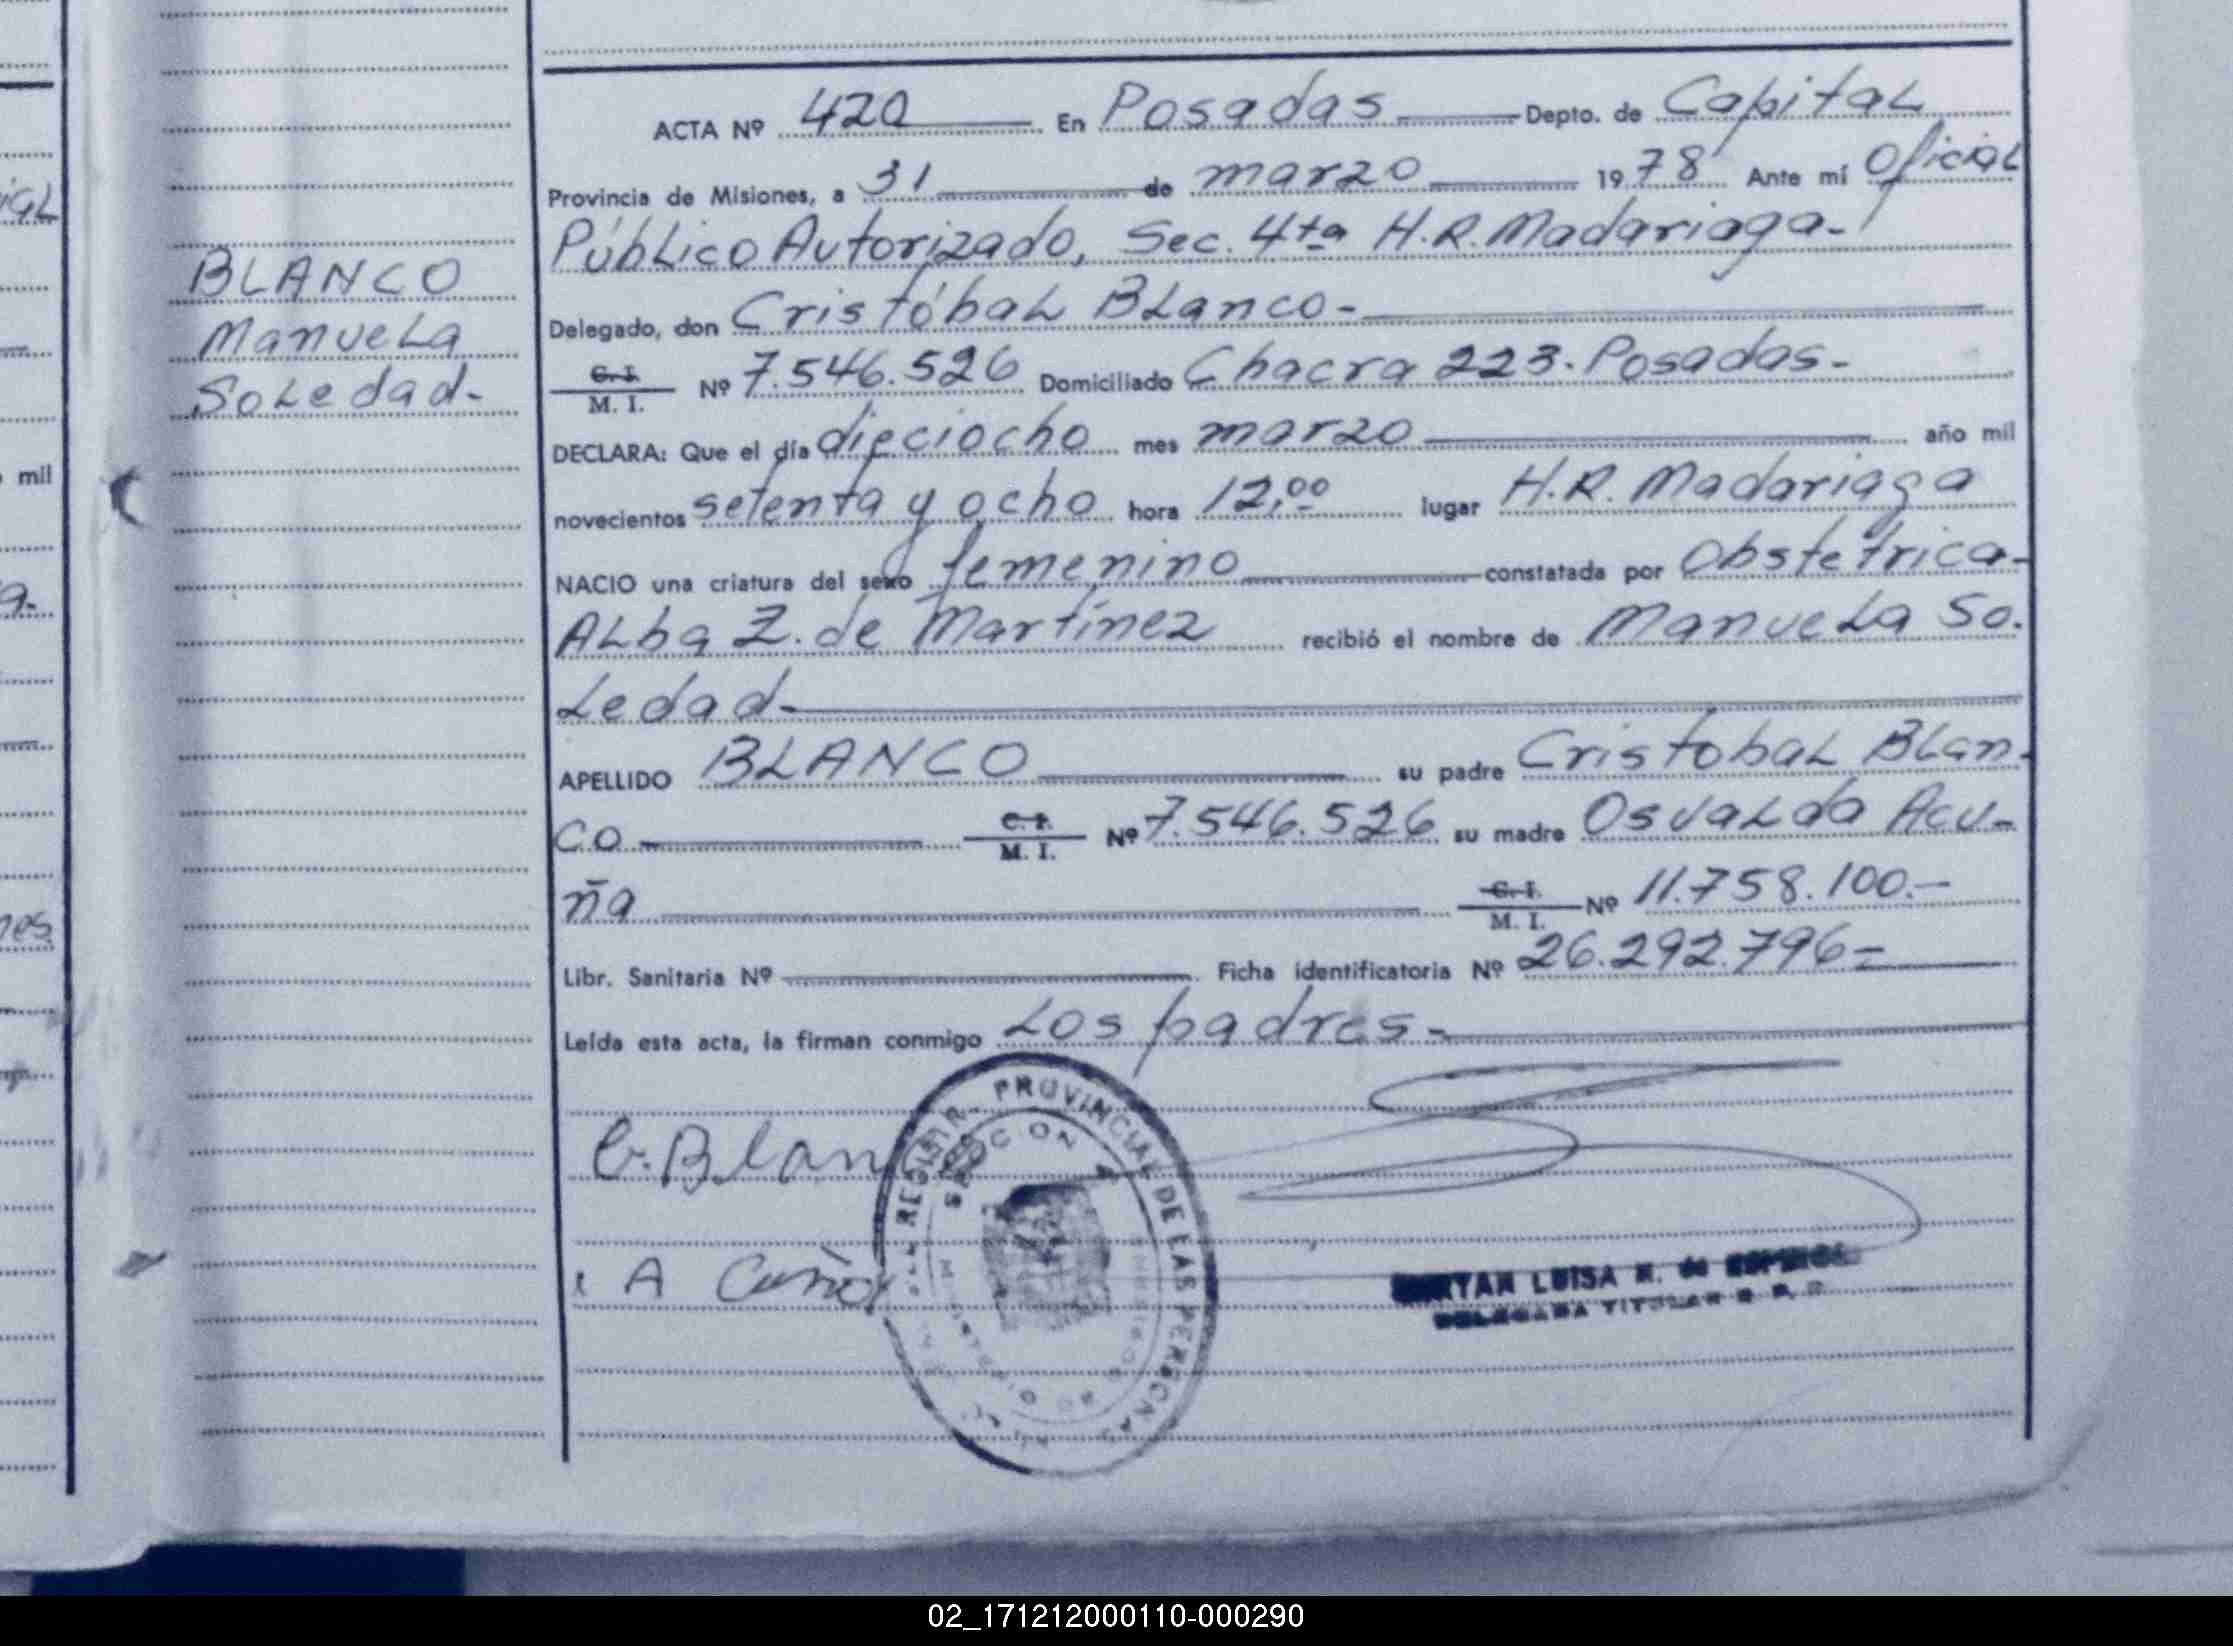 ACTA Nº 420 En Posadas Depto. de Capital
Provincia de Misiones, a 31 de marzo 1978 Ante mí Oficial
Público Autorizado, Sec. 4ta H.R. Madariaga-
BLANCO
Manuela
Soledad-
Delegado, don Cristóbal Blanco-
C. I.
M. I. Nº 7.546.526 Domiciliado Chacra 223. Posadas-
DECLARA: Que el día dieciocho mes marzo año mil
novecientos setenta y ocho hora 12,00 lugar H.R. Madariaga
NACIO una criatura del sexo femenino constatada por Obstetrica-
Alba Z. de Martínez recibió el nombre de Manuela So-
ledad-
APELLIDO BLANCO su padre Cristobal Blan-
co C. I.
M. I. Nº 7.546.526 su madre Osvalda Acu-
ña C. I.
M. I. Nº 11.758.100.-
Libr. Sanitaria Nº Ficha identificatoria Nº 26.292.796=
Leída esta acta, la firman conmigo Los padres-
C. Blanco
A Cuña
REGISTR. PROVINCIAL DE LAS PERSONAS
SECCION 4
LUISA de
DELEGADA TITULAR
mil
nes
02_171212000110-000290